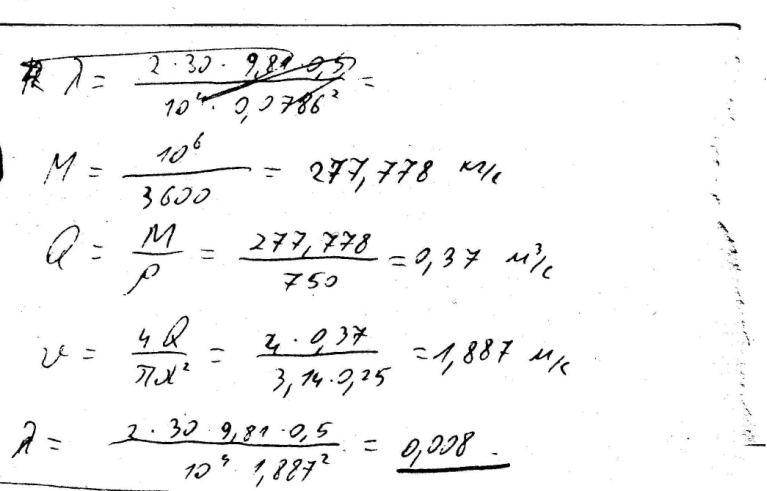 λ = 2 · 30 · 9,81 · 0,5 / 10⁴ · 0,0786² =
M = 10⁶ / 3600 = 277,778 кг/с
Q = M / ρ = 277,778 / 750 = 0,37 м³/с
v = 4Q / πd² = 4 · 0,37 / 3,14 · 0,25 = 1,887 м/с
λ = 2 · 30 · 9,81 · 0,5 / 10⁴ · 1,887² = 0,008.